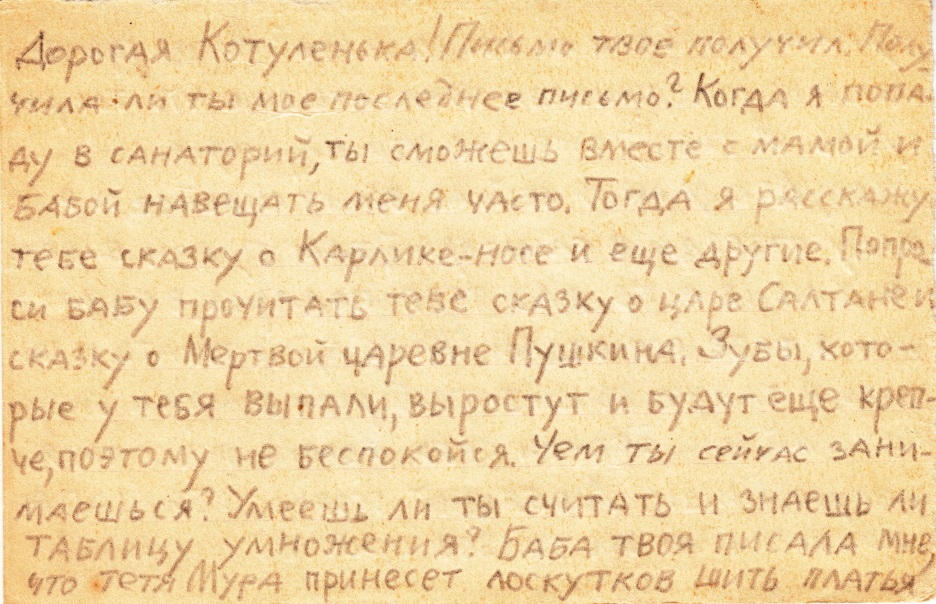 Дорогая Котуленька! Письмо твое получил. Полу-
чила ли ты мое последнее письмо? Когда я попа-
ду в санаторий, ты сможешь вместе с мамой и
бабой навещать меня часто. Тогда я расскажу
тебе сказку о Карлике-носе и еще другие. Попро-
си бабу прочитать тебе сказку о царе Салтане и
сказку о Мертвой царевне Пушкина. Зубы, кото-
рые у тебя выпали, выростут и будут еще креп-
че, поэтому не беспокойся. Чем ты сейчас зани-
маешься? Умеешь ли ты считать и знаешь ли
таблицу умножения? Баба твоя писала мне,
что тетя Мура принесет лоскутков шить платья